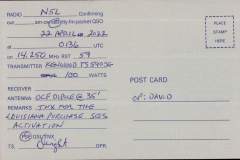 RADIO N5L Confirming
QSO
22 APRIL 2022
0136 UTC
on 14.250 MHz RST 59
TRANSMITTER KENWOOD TS590SG
100 WATTS
RECEIVER
ANTENNA OCF DIPOLE @ 35'
REMARKS TNX FOR THE
LOUISIANA PURCHASE SES
ACTIVATION
QSL/TNX
73, Dwight OPR.
PLACE
STAMP
HERE
POST CARD
OP: DAVID